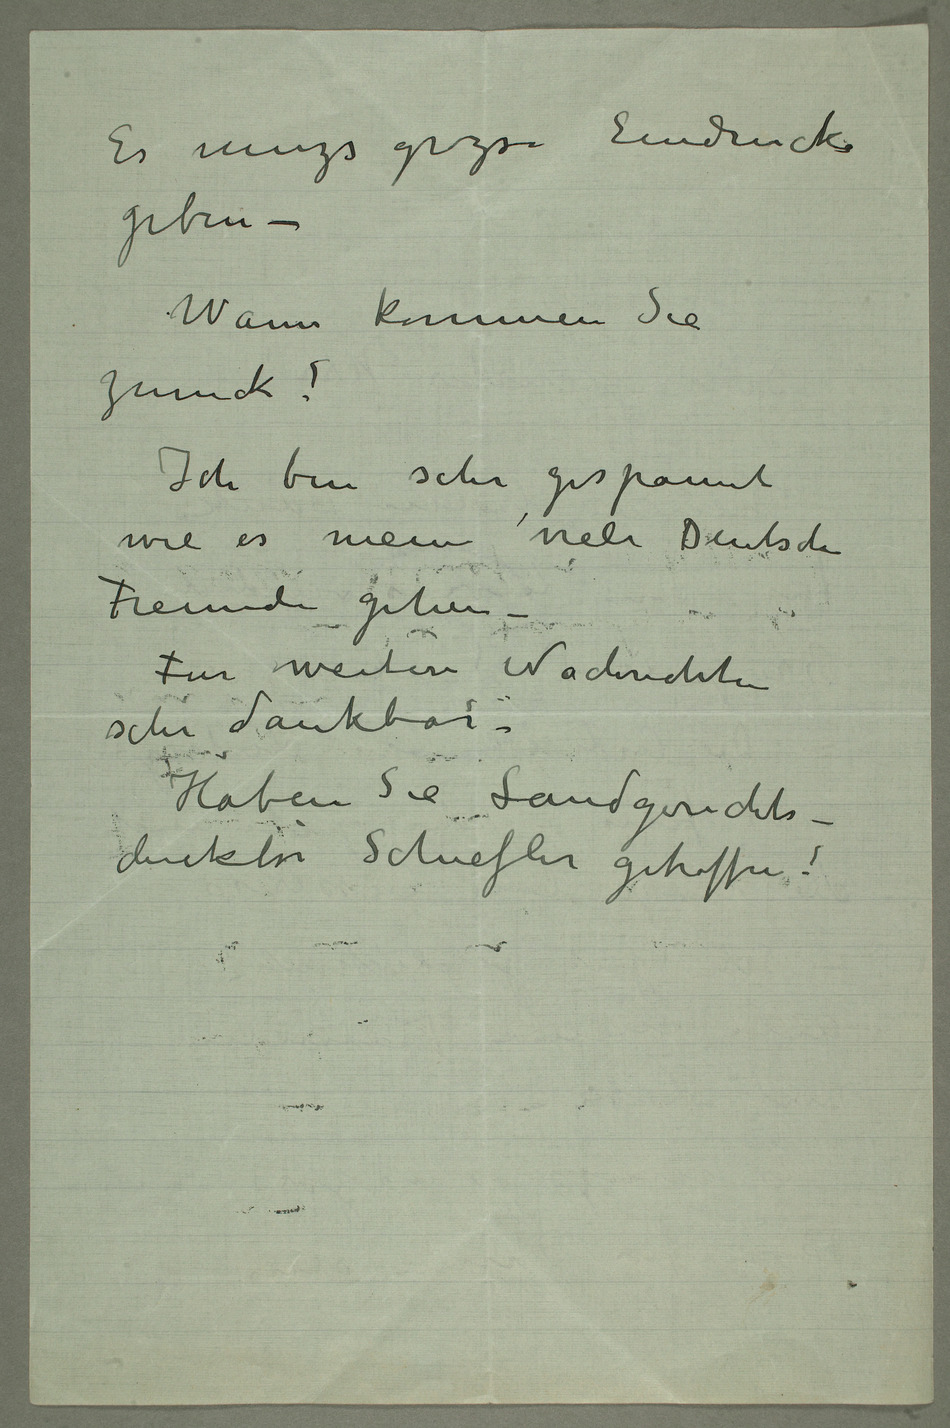 Es muszs grozse Eindrucke
geben –
Wann kommen Sie
zuruck?
Ich bin sehr gespannt
wie es meine viele Deutsche
Freunde gehen –
Fur weitere Nachrichten
sehr dankbar –
Haben Sie Landgerichts–
direktor Schiefler getroffen?